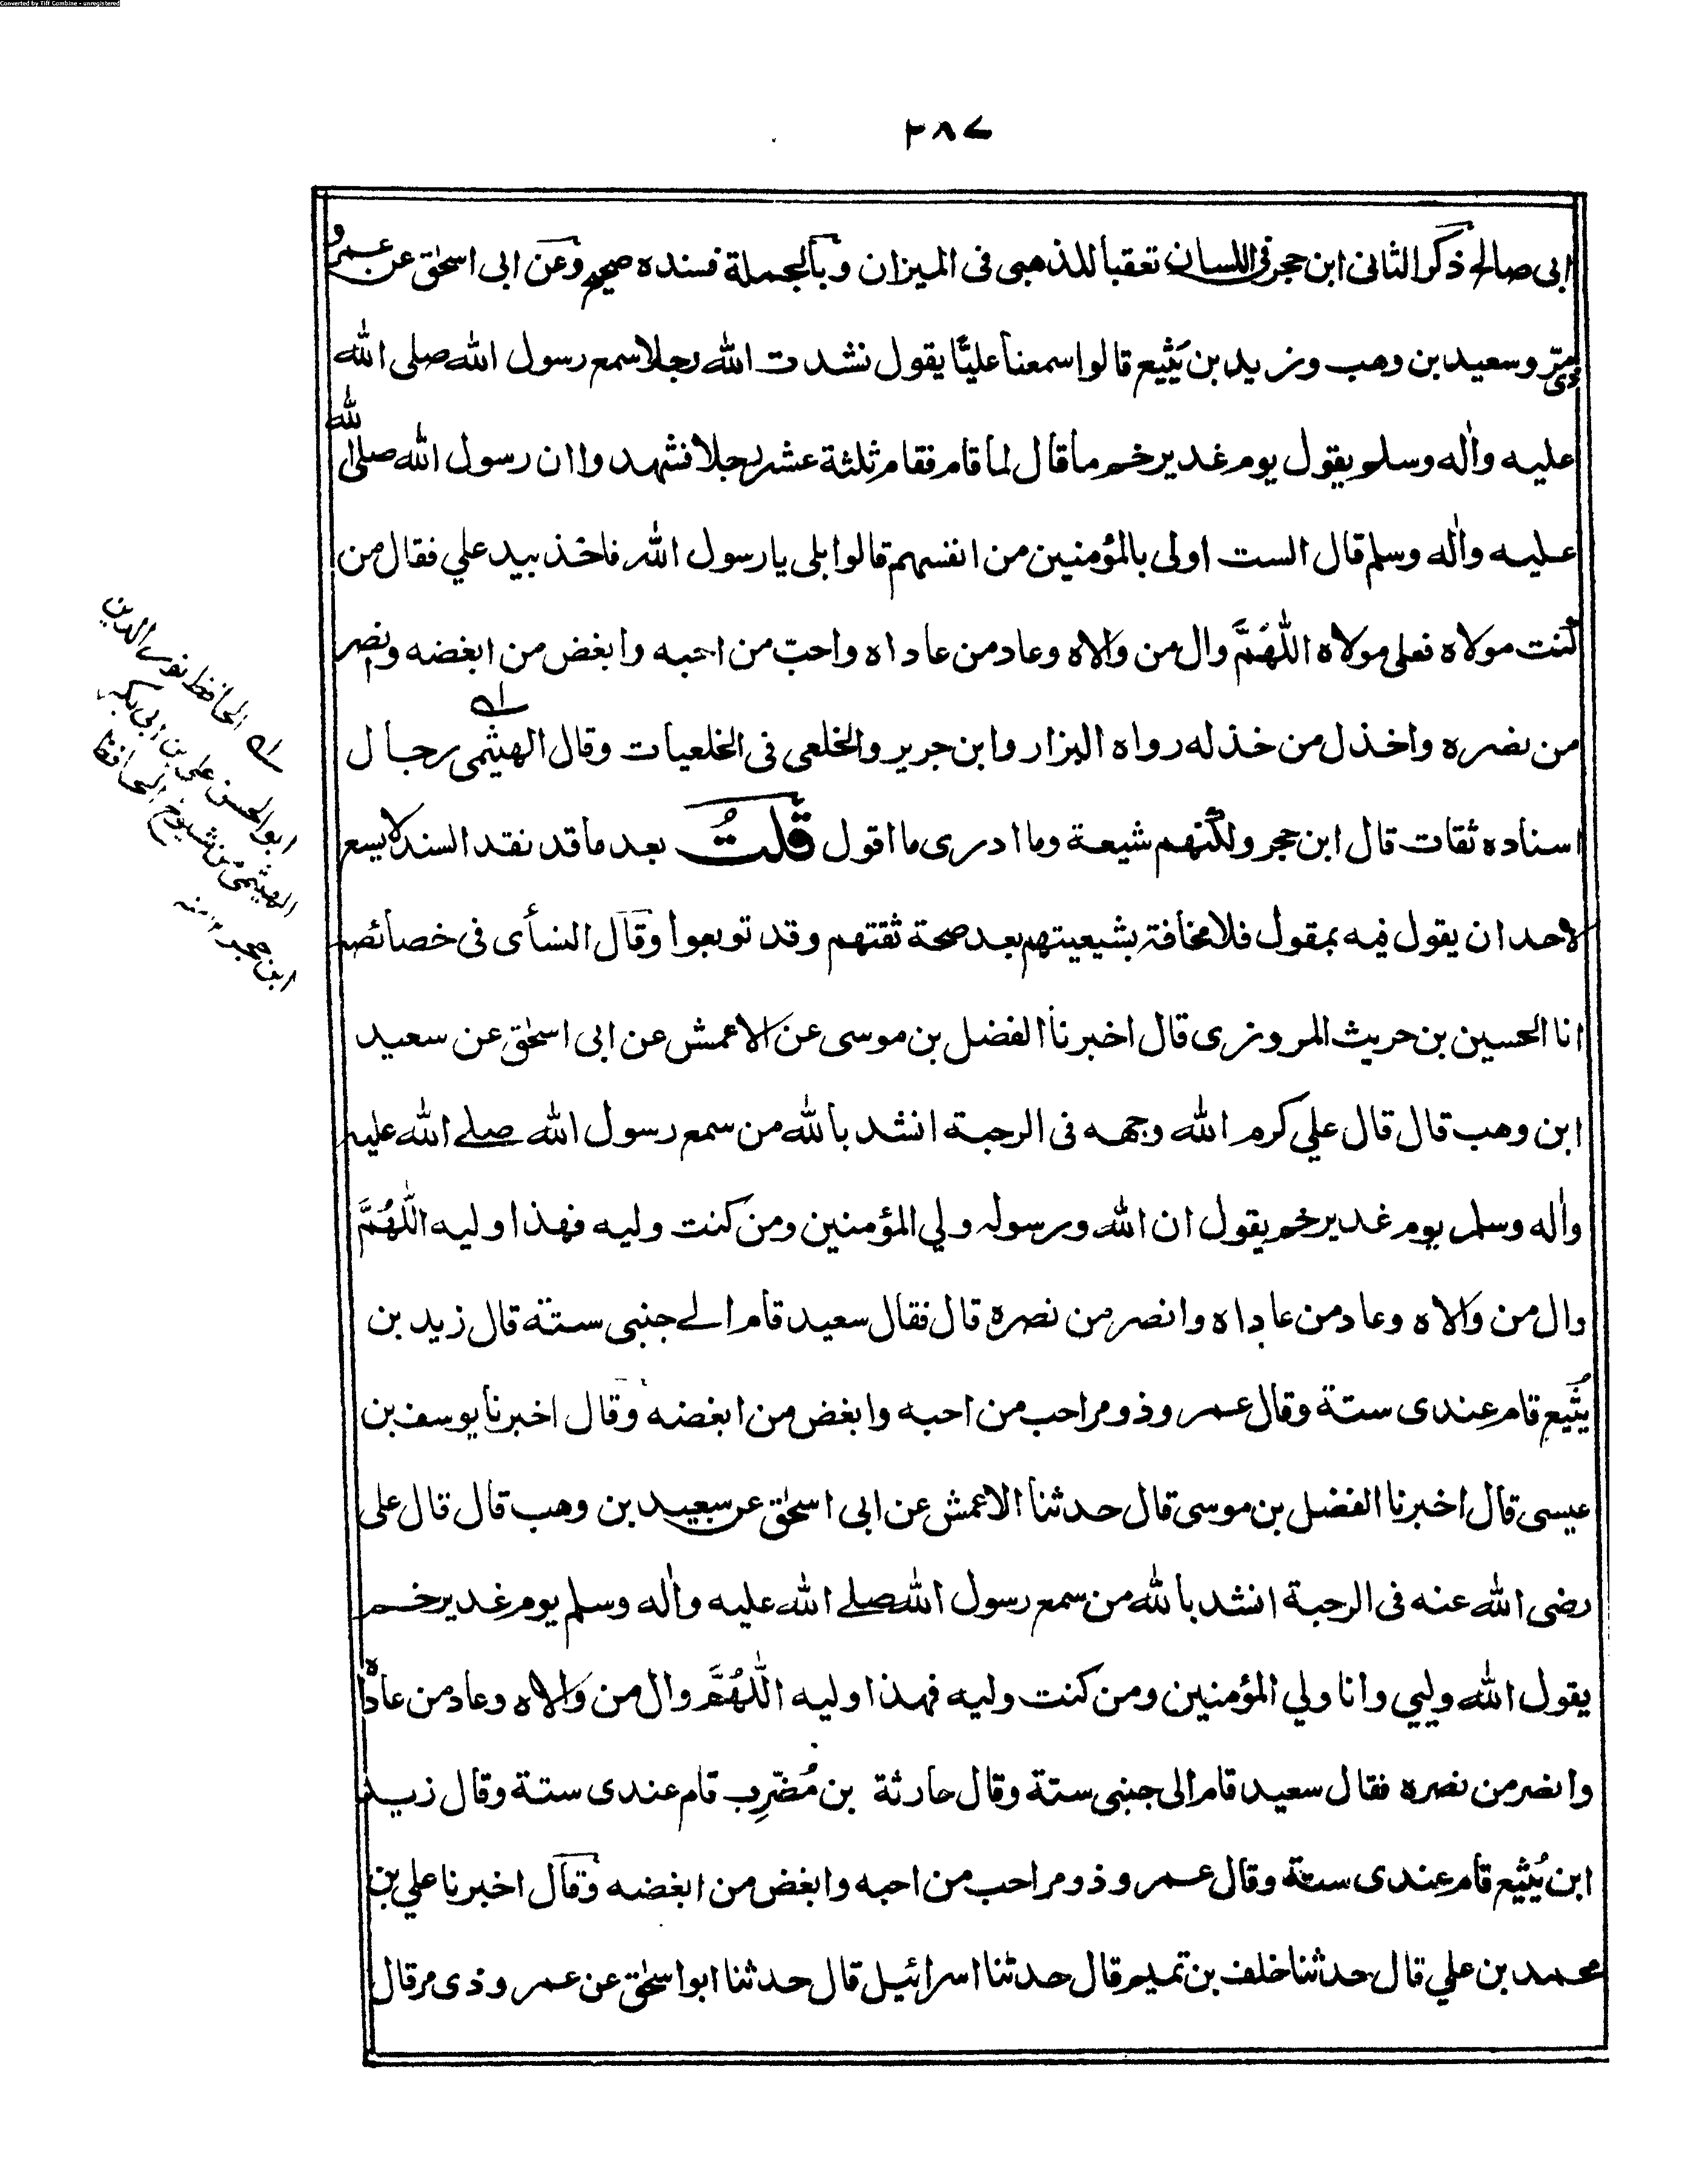 Converted by Tiff Combine - unregistered
٢٨٧
ابى صالح ذكر الثانى ابن حجر فى اللسان تعقبا للذهبى فى الميزان وبالجملة فسنده صحيح وعن ابى اسحٰق عن عمرو
ذى مرّ وسعيد بن وهب وزيد بن يثيع قالوا سمعنا عليًّا يقول نشدت الله رجلا سمع رسول الله صلى الله
عليه واٰله وسلم يقول يوم غدير خم ما قال لما قام فقام ثلثة عشر رجلا فشهدوا ان رسول الله صلى الله
عليه واٰله وسلم قال الست اولى بالمؤمنين من انفسهم قالوا بلى يا رسول الله فاخذ بيد علي فقال من
كنت مولاه فعلى مولاه اللّٰهُمَّ وال من والاه وعاد من عاداه واحبّ من احبه وابغض من ابغضه وانصر
من نصره واخذل من خذله رواه البزار وابن جرير والخلعى فى الخلعيات وقال الهيثمى رجال
اسناده ثقات قال ابن حجر ولكنهم شيعة وما ادرى ما اقول قلتُ بعد ما قد نقد السند لا يسع
لاحد ان يقول فيه بمقول فلا مخافة بشيعيتهم بعد صحة ثقتهم وقد توبعوا وقال النسأى فى خصائصه
انا الحسين بن حريث المروزى قال اخبرنا الفضل بن موسى عن الاعمش عن ابى اسحٰق عن سعيد
ابن وهب قال قال علي كرم الله وجهه فى الرحبة انشد بالله من سمع رسول الله صلے الله عليه
واٰله وسلم يوم غدير خم يقول ان الله ورسوله ولي المؤمنين ومن كنت وليه فهذا وليه اللّٰهُمَّ
وال من والاه وعاد من عاداه وانصر من نصره قال فقال سعيد قام الے جنبى ستة قال زيد بن
يُثيع قام عندى ستة وقال عمرو ذو مر احب من احبه وابغض من ابغضه وقال اخبرنا يوسف بن
عيسى قال اخبرنا الفضل بن موسى قال حدثنا الاعمش عن ابى اسحٰق عن سعيد بن وهب قال قال على
رضى الله عنه فى الرحبة انشد بالله من سمع رسول الله صلے الله عليه واٰله وسلم يوم غدير خم
يقول الله وليي وانا ولي المؤمنين ومن كنت وليه فهذا وليه اللّٰهُمَّ وال من والاه وعاد من عاداه
وانصر من نصره فقال سعيد قام الى جنبى ستة وقال حارثة بن مُضَرِّب قام عندى ستة وقال زيد
ابن يُثيع قام عندى ستة وقال عمرو ذو مر احب من احبه وابغض من ابغضه وقال اخبرنا علي بن
محمد بن علي قال حدثنا خلف بن تميم قال حدثنا اسرائيل قال حدثنا ابو اسحٰق عن عمرو ذى مر قال
الحافظ نور الدين
ابو الحسن على بن ابى بكر
الهيثمى من شيوخ الحافظ
ابن حجر ١٢ منه